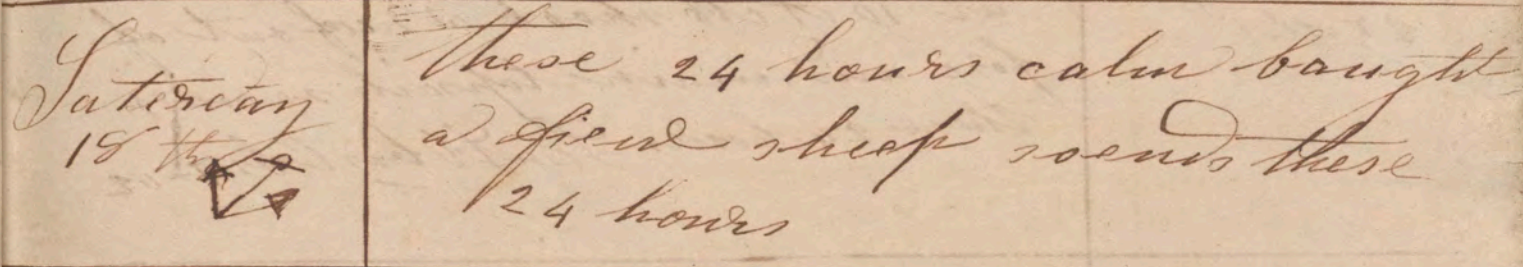 Saterday
18 th
these 24 hours calm baught
a fiew sheep soends these
24 hours